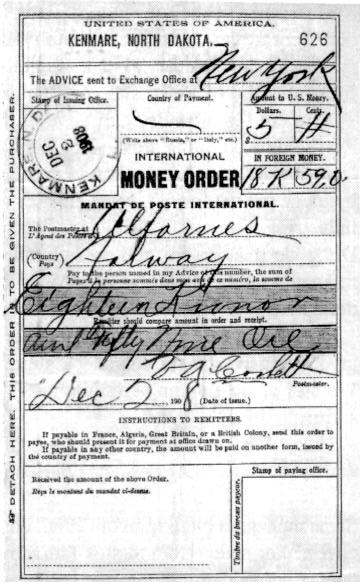 UNITED STATES OF AMERICA.
KENMARE, NORTH DAKOTA. 626
The ADVICE sent to Exchange Office at New York
Stamp of Issuing Office.
Country of Payment.
Amount in U.S. Money.
Dollars. Cents.
$ 5
(Write above "Russia," or "Italy," etc.)
KENMARE N. D.
DEC
2
1908
INTERNATIONAL
MONEY ORDER
IN FOREIGN MONEY.
18 K 59 O
MANDAT DE POSTE INTERNATIONAL.
The Postmaster at
L'Agent des Postes à
(Country)
Pays
Norway
Pay to the person named in my Advice of this number, the sum of
Payez à la personne nommée dans mon avis de ce numéro, la somme de
Eighteen Kronor
Remitter should compare amount in order and receipt.
and Fifty Nine Ore
Postmaster.
Dec 2 1908 (Date of issue.)
INSTRUCTIONS TO REMITTERS.
If payable in France, Algeria, Great Britain, or a British Colony, send this order to
payee, who should present it for payment at office drawn on.
If payable in any other country, the amount will be paid on another form, issued by
the country of payment.
Received the amount of the above Order.
Reçu le montant du mandat ci-dessus.
Stamp of paying office.
Timbre du bureau payeur.
DETACH HERE. THIS ORDER IS TO BE GIVEN THE PURCHASER.